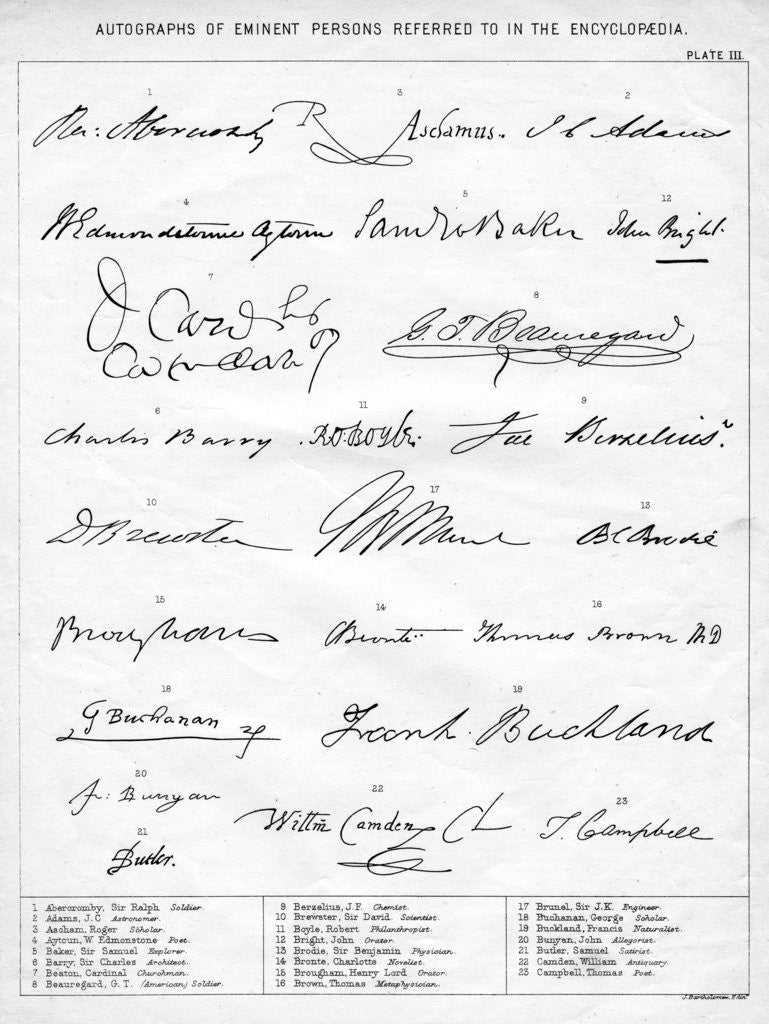 AUTOGRAPHS OF EMINENT PERSONS REFERRED TO IN THE ENCYCLOPÆDIA.
PLATE III.
1 3 2
Ra: Abercromby R Aschamus. J C Adams
4 5 12
W Edmondstoune Aytoun Saml W Baker John Bright.
7 8
G. T. Beauregard
6 11 9
Charles Barry Ro: Boyle. Jac Berzelius
10 17 13
D Brewster Brunel B C Brodie
15 14 16
Brougham C Brontë Thomas Brown M D
18 19
G Buchanan Frank Buckland
20 22 23
Jn: Bunyan Willm Camden Cl T. Campbell
21
Butler.
1 Abercromby, Sir Ralph Soldier.
2 Adams, J.C Astronomer.
3 Ascham, Roger Scholar.
4 Aytoun, W. Edmonstone Poet.
5 Baker, Sir Samuel Explorer.
6 Barry, Sir Charles Architect.
7 Beaton, Cardinal Churchman.
8 Beauregard, G. T. (American) Soldier.
9 Berzelius, J.F. Chemist.
10 Brewster, Sir David. Scientist.
11 Boyle, Robert Philanthropist.
12 Bright, John Orator.
13 Brodie, Sir Benjamin Physician.
14 Bronte, Charlotte Novelist.
15 Brougham, Henry Lord Orator.
16 Brown, Thomas Metaphysician.
17 Brunel, Sir J.K. Engineer.
18 Buchanan, George Scholar.
19 Buckland, Francis Naturalist.
20 Bunyan, John Allegorist.
21 Butler, Samuel Satirist.
22 Camden, William Antiquary.
23 Campbell, Thomas Poet.
J. Bartholomew, Edinr